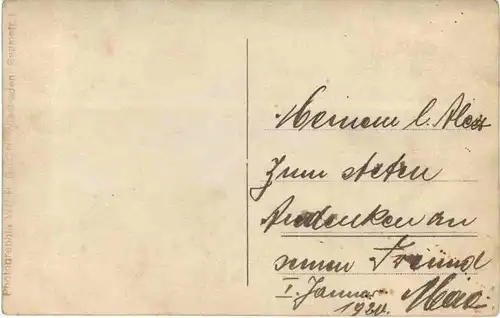 Meinem l. Alex
Zum steten
Andenken an
seinen Freund
I. Januar Max.
1920.
Photographie